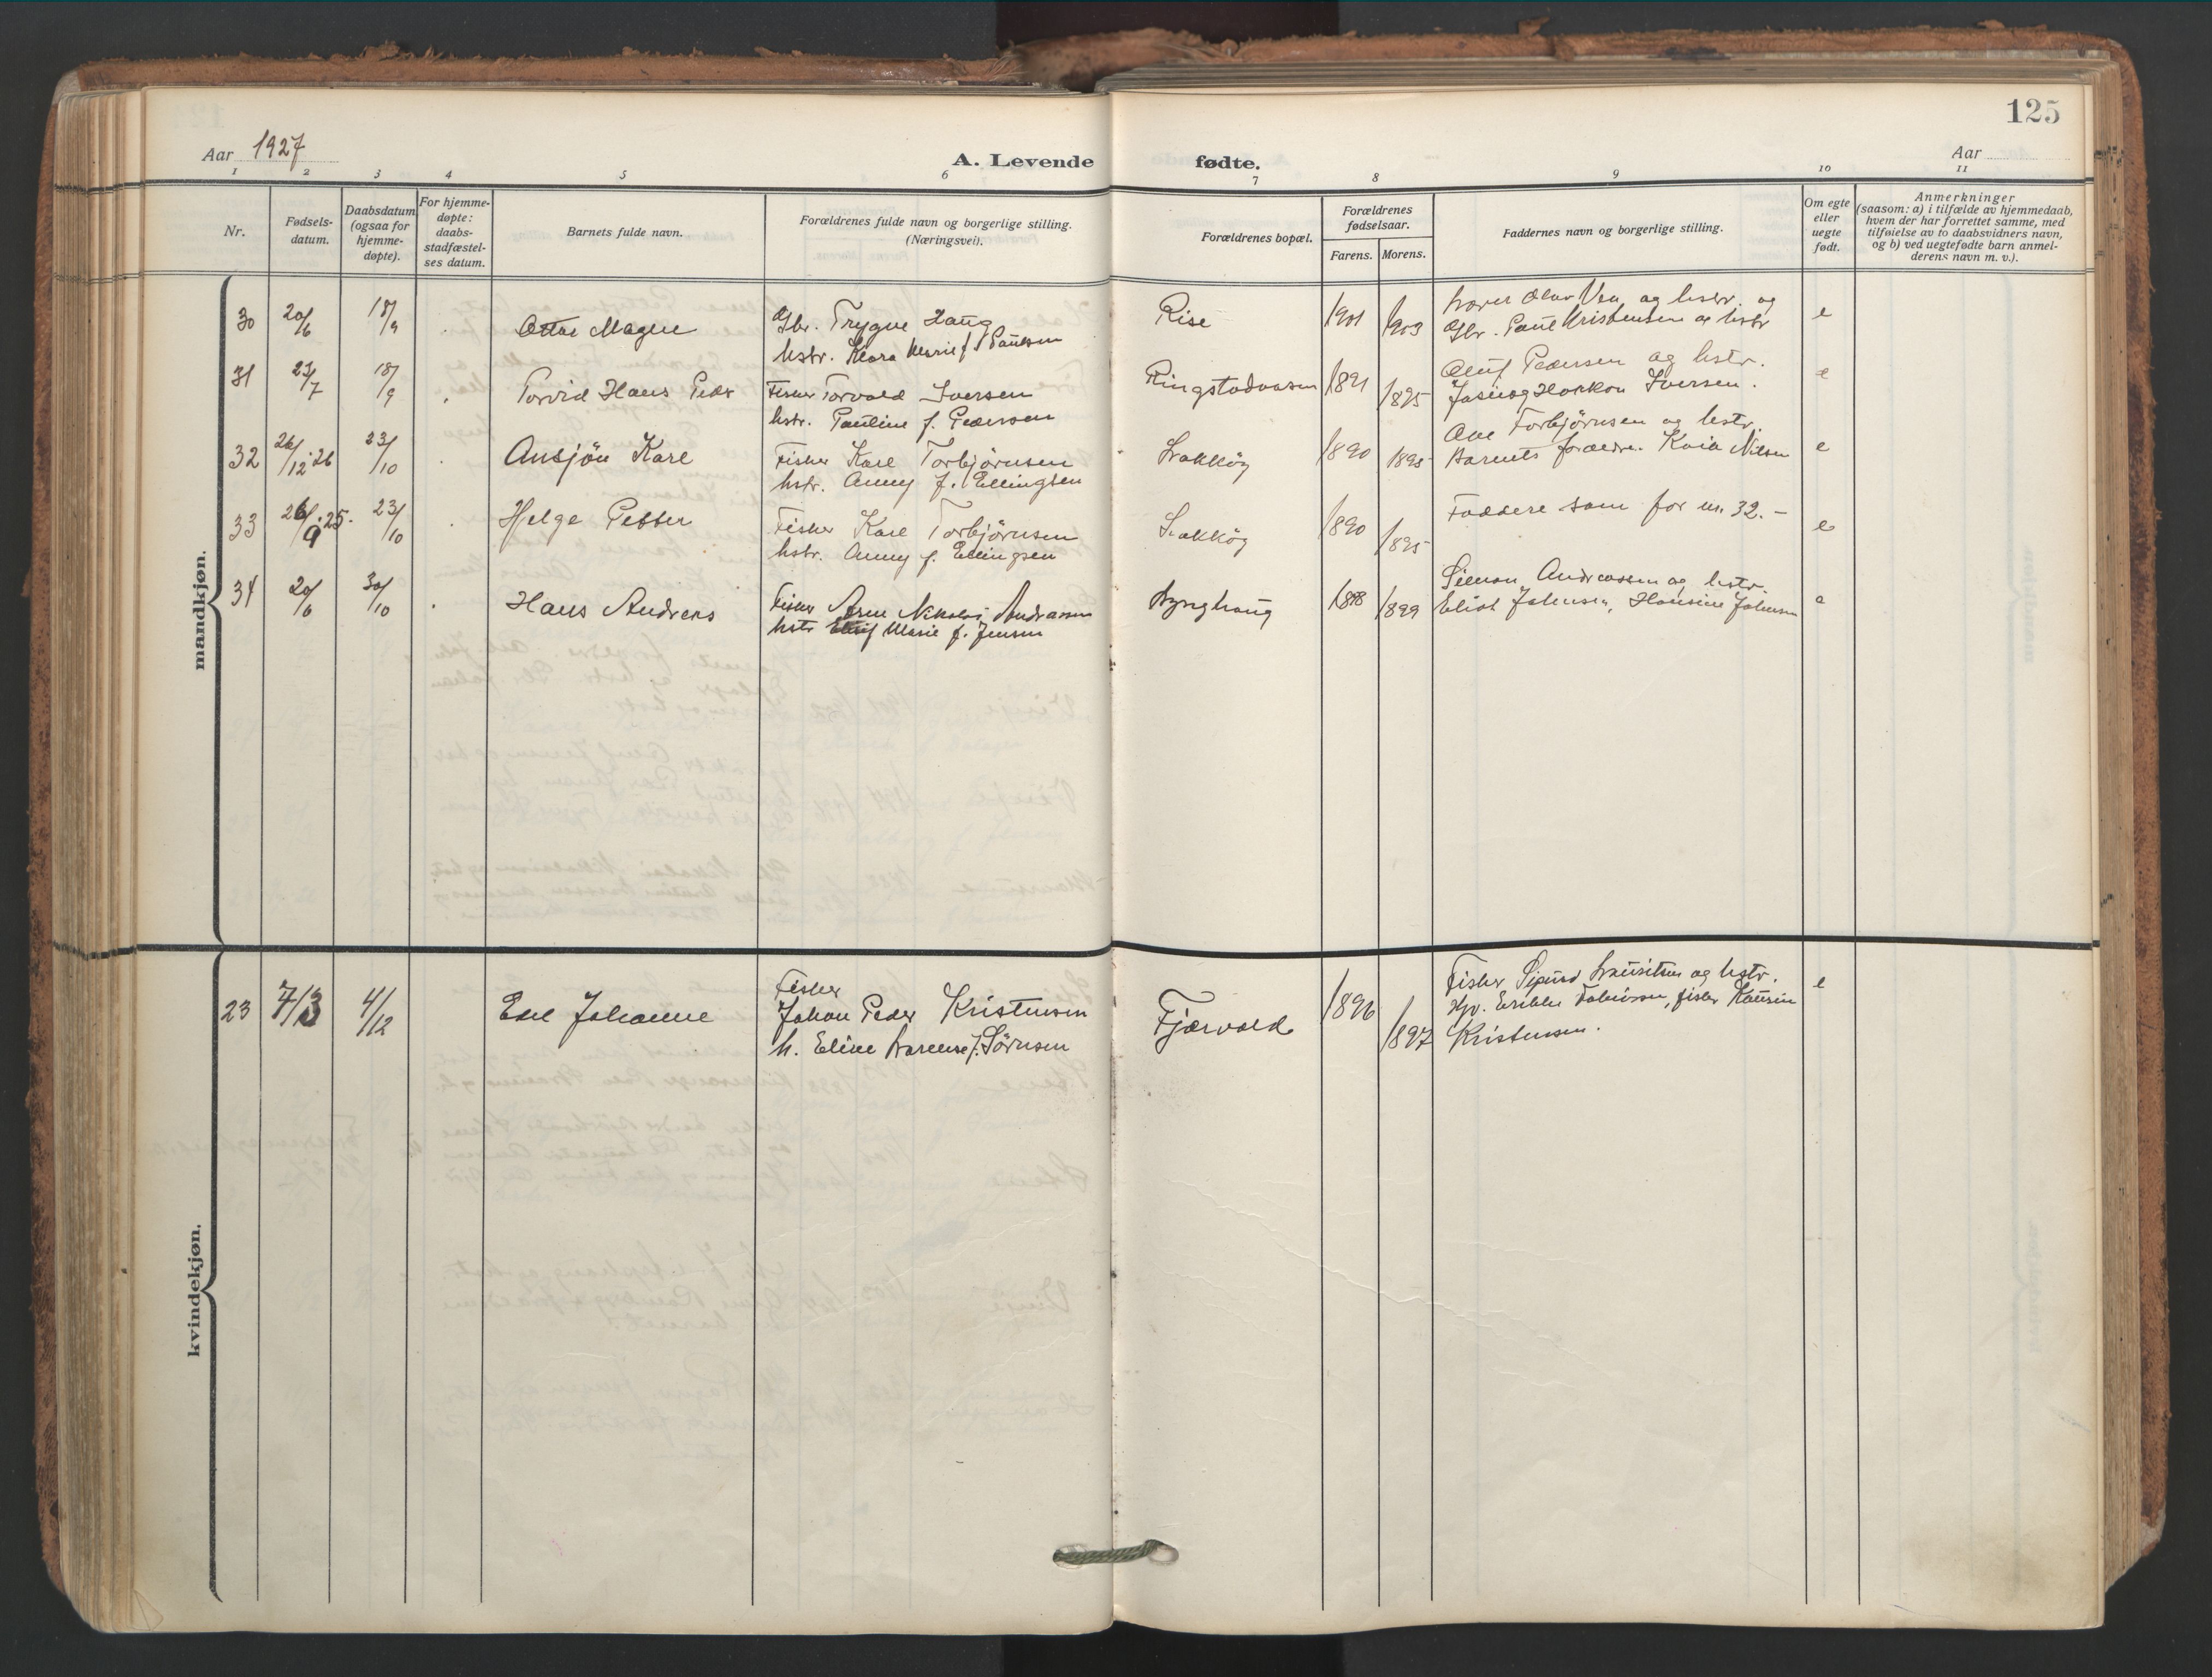 125
Aar 1927
A. Levende fødte.
Aar
1 2 3 4 5 6 7 8 9 10 11
Nr.
Fødsels-
datum.
Daabsdatum
(ogsaa for
hjemme-
døpte).
For hjemme-
døpte:
daabs-
stadfæstel-
ses datum.
Barnets fulde navn.
Forældrenes fulde navn og borgerlige stilling.
(Næringsvei).
Forældrenes bopæl.
Forældrenes
fødselsaar.
Farens. Morens.
Faddernes navn og borgerlige stilling.
Om egte
eller
uegte
født.
Anmerkninger
(saasom: a) i tilfælde av hjemmedaab,
hvem der har forrettet samme, med
tilføielse av to daabsvidners navn,
og b) ved uegtefødte barn anmel-
derens navn m. v.).
mandkjøn.
30 20/6 18/9 Ottar Magne
Gbr. Trygve Haug
hstr. Klara Marie f. Paulsen
Rise 1901 1903
Lærer Olav Vea og hstr. og
Gbr. Paul Kristensen og hstr
e
31 23/7 18/9 Torvid Hans Peder
Fisker Torvald Iversen
hstr. Pauline f. Pedersen
Ringstadvaasen 1891 1895
Oluf Pedersen og hstr.
og Haakon Iversen.
e
32 26/12 26 23/10 Ansjön Kare
Fisker Karl Torbjörnsen
hstr. Anny f. Ellingsen
1890 1895
Torbjørnsen og hstr.
Barnets forældre. Nilsen
e
33 26/9 25. 23/10 Helge Petter
Fisker Karl Torbjörnsen
hstr. Anny f. Ellingsen
1890 1895
Faddere som for nr. 32. -
e
34 20/6 30/10 Hans Andreas
Fisker Arne Nikolai Andreassen
hstr Marie f. Jensen
Lynghaug 1898 1899
Simon Andreassen og hstr.
Eliot Johnsen, Hansine Johnsen
e
kvindekjøn.
23 7/3 4/12 Edel Johanne
Fisker
Johan Peder Kristensen
h. Eline Larense f. Sörnsen
Fjærvold 1896 1897
Fisker Sigurd Lauritsen og hstr.
fisker Kaurin
Kristensen.
e